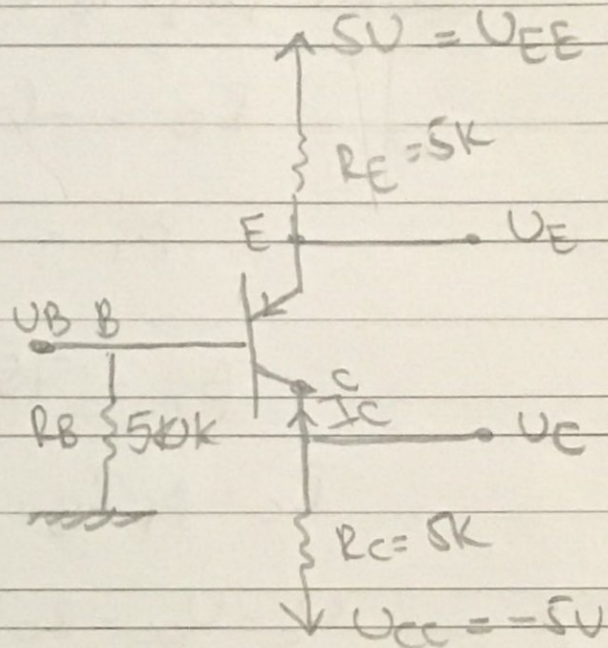 5V = VEE
RE = 5K
E
VE
VB B
C
IC
RB 50K
VC
RC = 5K
VCC = -5V